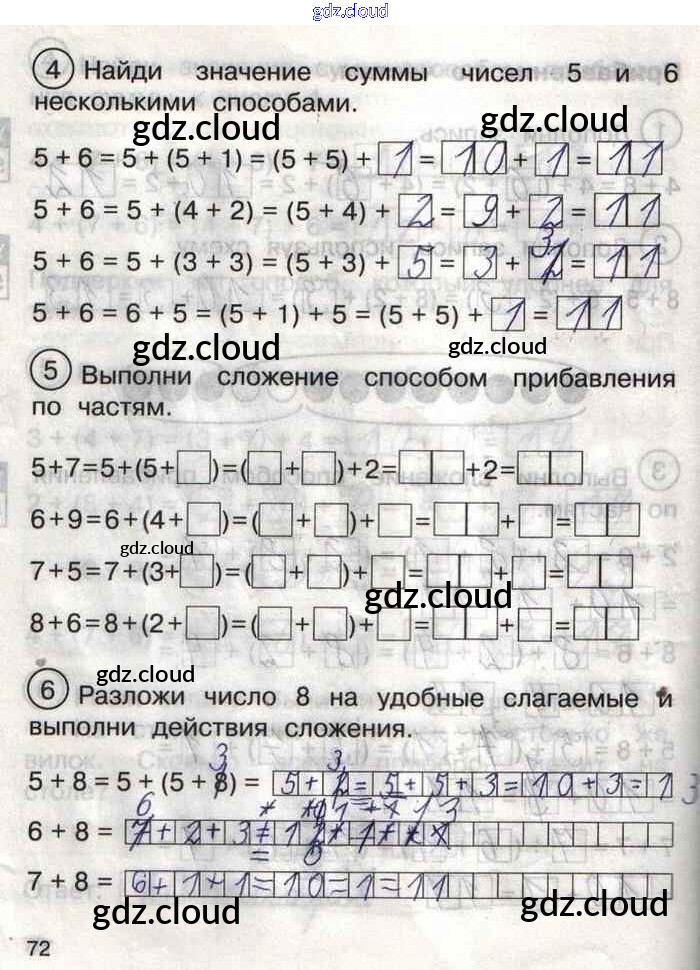 gdz.cloud
4 Найди значение суммы чисел 5 и 6
несколькими способами.
gdz.cloud gdz.cloud
5 + 6 = 5 + (5 + 1) = (5 + 5) + 1 = 10 + 1 = 11
5 + 6 = 5 + (4 + 2) = (5 + 4) + 2 = 9 + 2 = 11
5 + 6 = 5 + (3 + 3) = (5 + 3) + 5 = 3 + 3 = 11
5 + 6 = 6 + 5 = (5 + 1) + 5 = (5 + 5) + 1 = 11
gdz.cloud gdz.cloud
5 Выполни сложение способом прибавления
по частям.
5+7=5+(5+ )=( + )+2= +2=
6+9=6+(4+ )=( + )+ = + =
gdz.cloud
7+5=7+(3+ )=( + )+ = + =
gdz.cloud
8+6=8+(2+ )=( + )+ = + =
gdz.cloud
6 Разложи число 8 на удобные слагаемые и
выполни действия сложения.
5 + 8 = 5 + (5 + 3) = 5+ = 5+5+3=10+3=13
6 + 8 = 6+2+3=
7 + 8 = 6+1+1=10=1=11
gdz.cloud gdz.cloud
72